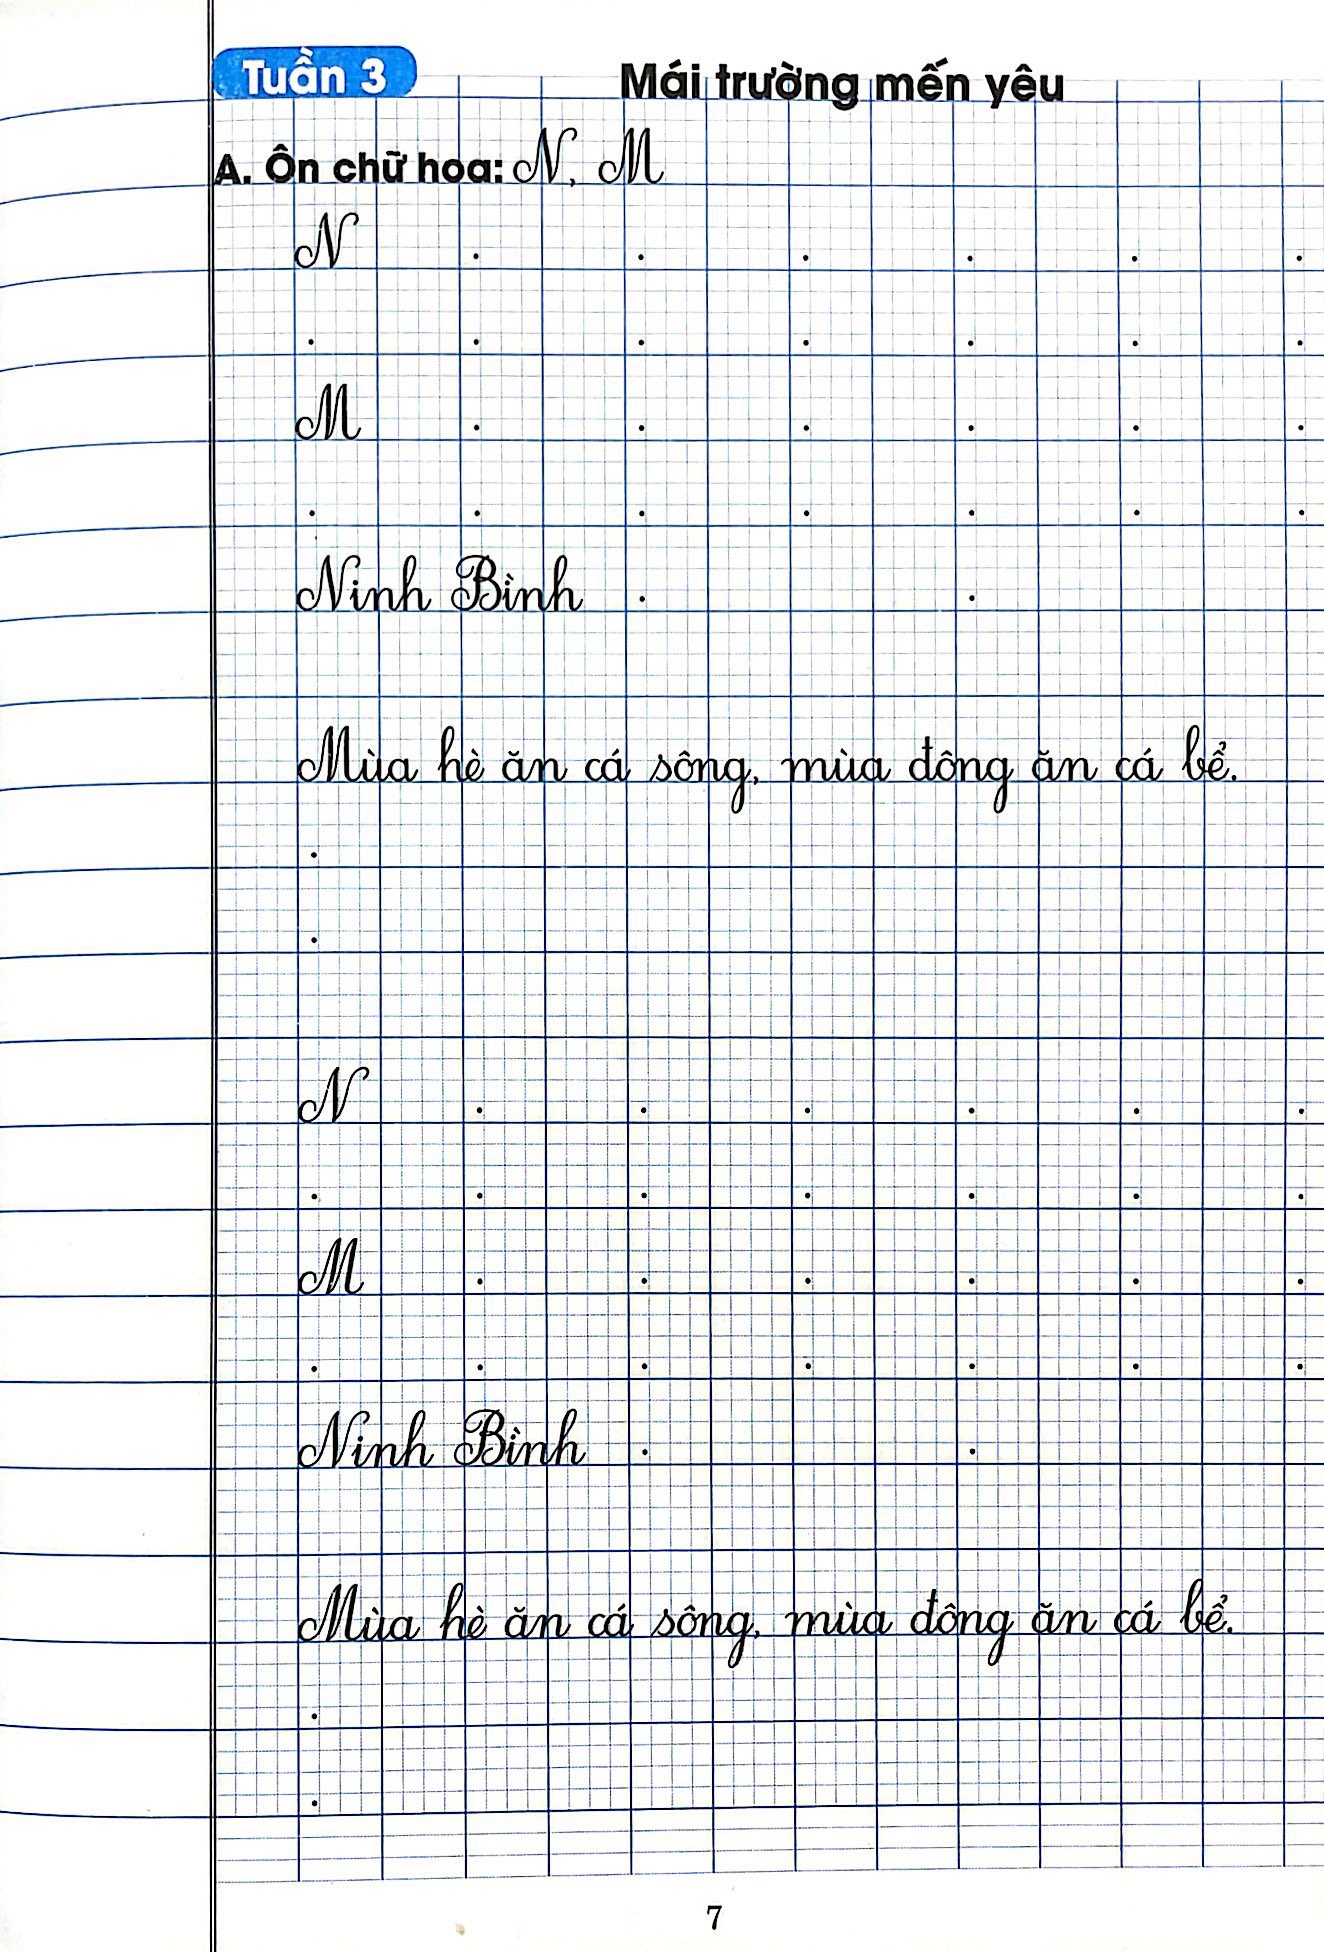 Tuần 3 Mái trường mến yêu
A. Ôn chữ hoa: N, M
N
M
Ninh Bình
Mùa hè ăn cá sông, mùa đông ăn cá bể.
N
M
Ninh Bình
Mùa hè ăn cá sông, mùa đông ăn cá bể.
7